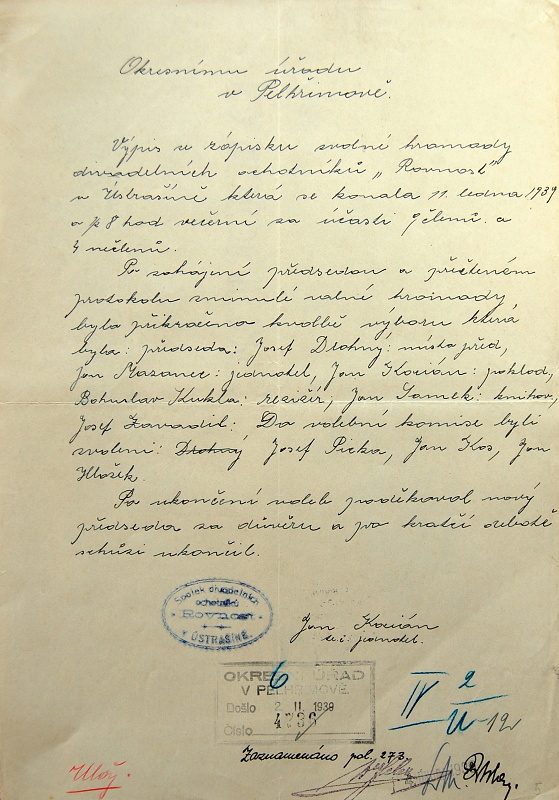 Okresnímu úřadu
v Pelhřimově.
Výpis z zápisku valné hromady
divadelních ochotníků „Rovnost"
v Ústrašíně která se konala 11. ledna 1939
o ½ 8 hod večerní za účasti 9 členů a
4 nečlenů.
Po zahájení předsedou a přečteném
protokolu minulé valné hromady
bylo přikročeno k volbě výboru která
byla: předseda: Josef Drohný: místopřed,
Jan Mazanec: jednatel, Jan Kocián: poklad,
Bohuslav Kukla: režisér; Jan Samek: knihov,
Josef Zavadil: Do volební komise byli
zvoleni: Drohný Josef Picka, Jan Kos, Jan
Hložek.
Po ukončení voleb poděkoval nový
předseda za důvěru a po kratší debatě
schůzi ukončil.
Spolek divadelních
ochotníků
Rovnost
v ÚSTRAŠÍNĚ.
Jan Kocián
t.č. jednatel.
OKRESNÍ ÚŘAD
V PELHŘIMOVĚ
6
Došlo 2 II 1939
Číslo 4736
IV 2
12
Zaznamenáno pol. 273.
Ulož.